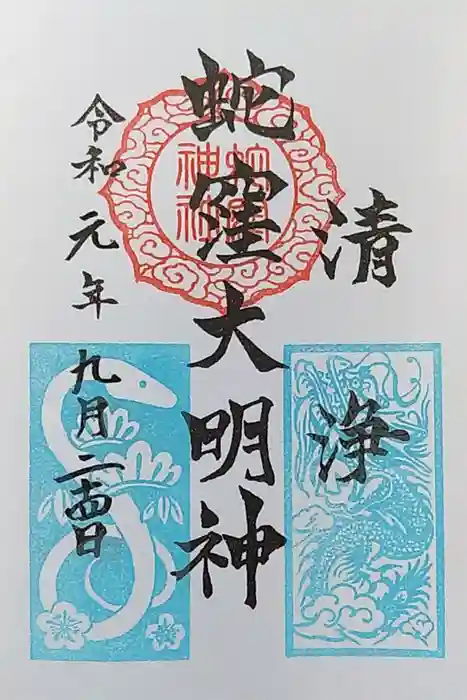 清浄
蛇窪大明神
蛇窪神社
令和元年九月二十四日